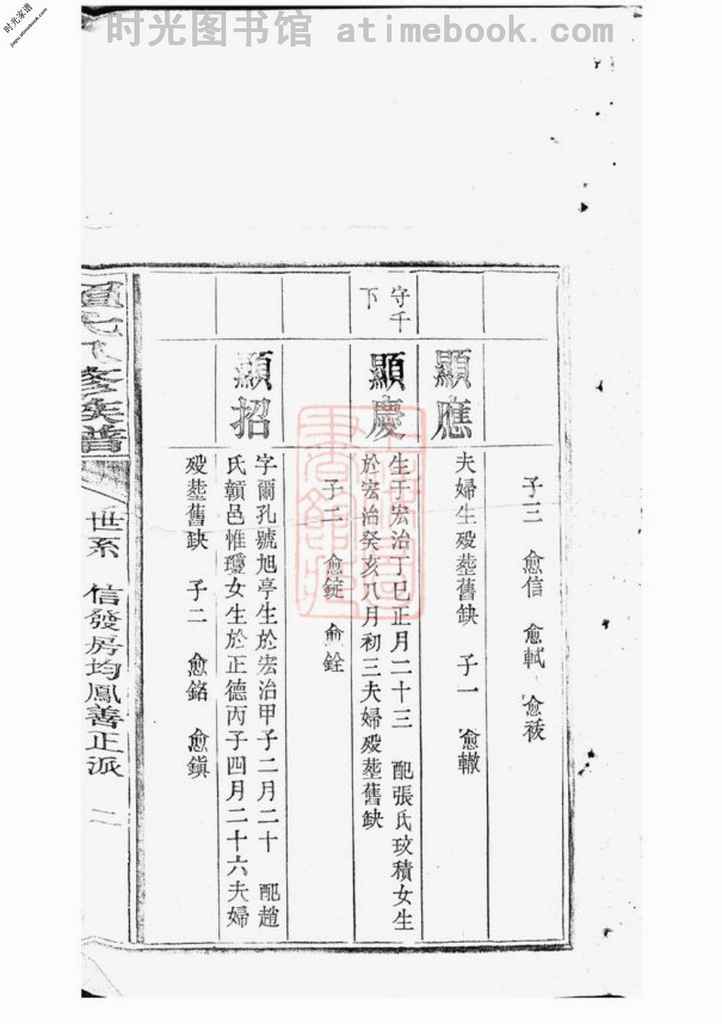 时光图书馆 atimebook.com
时光家谱
jiapu.atimebook.com
子三 愈信 愈軾 愈祓
顯應
夫婦生殁塟舊缺 子一 愈轍
守千下
顯慶
生于宏治丁巳正月二十三 配張氏玟積女生
於宏治癸亥八月初三夫婦殁塟舊缺
子二 愈錠 愈銓
顯招
字爾孔號旭亭生於宏治甲子二月二十 配趙
氏贛邑惟瓊女生於正德丙子四月二十六夫婦
殁塟舊缺 子二 愈銘 愈鎭
氏 修族譜
世系 信發房均鳳善正派 二